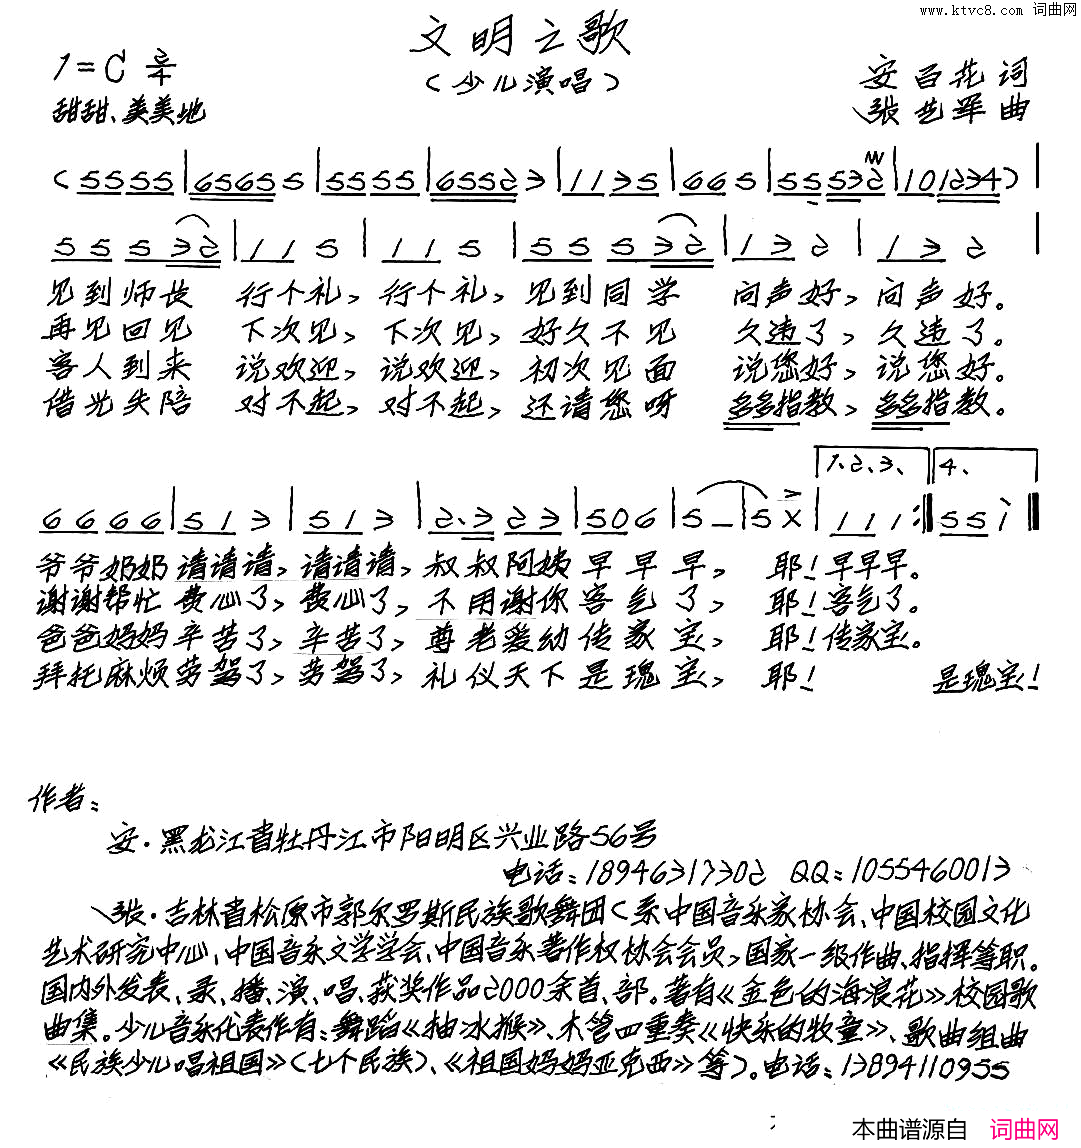 www.ktvc8.com 词曲网
文明之歌
1=C 2/4
（少儿演唱）
安百花 词
甜甜、美美地
张艺军 曲
（5555|65655|5555|65523|1135|665|55532|101234）|
55532|115|115|55532|132|132|
见到师长 行个礼，行个礼，见到同学 问声好，问声好。
再见回见 下次见，下次见，好久不见 久违了，久违了。
客人到来 说欢迎，说欢迎，初次见面 说您好，说您好。
借光失陪 对不起，对不起，还请您呀 多多指教，多多指教。
1、2、3、 4、
6666|513|513|2·323|506|5–|5X|111:‖55i‖
爷爷奶奶 请请请，请请请，叔叔阿姨 早早早，耶！早早早。
谢谢帮忙 费心了，费心了，不用谢你 客气了，耶！客气了。
爸爸妈妈 辛苦了，辛苦了，尊老爱幼 传家宝，耶！传家宝。
拜托麻烦 劳驾了，劳驾了，礼仪天下 是瑰宝，耶！ 是瑰宝！
作者：
安·黑龙江省牡丹江市阳明区兴业路56号
电话：18946317302 QQ：1055460013
张·吉林省松原市郭尔罗斯民族歌舞团（系中国音乐家协会、中国校园文化
艺术研究中心、中国音乐文学学会、中国音乐著作权协会会员，国家一级作曲、指挥等职。
国内外发表、录、播、演、唱、获奖作品2000余首、部。著有《金色的海浪花》校园歌
曲集。少儿音乐代表作有：舞蹈《抽冰猴》、木管四重奏《快乐的牧童》、歌曲组曲
《民族少儿唱祖国》（七个民族）、《祖国妈妈亚克西》等）。电话：13894110955
本曲谱源自 词曲网